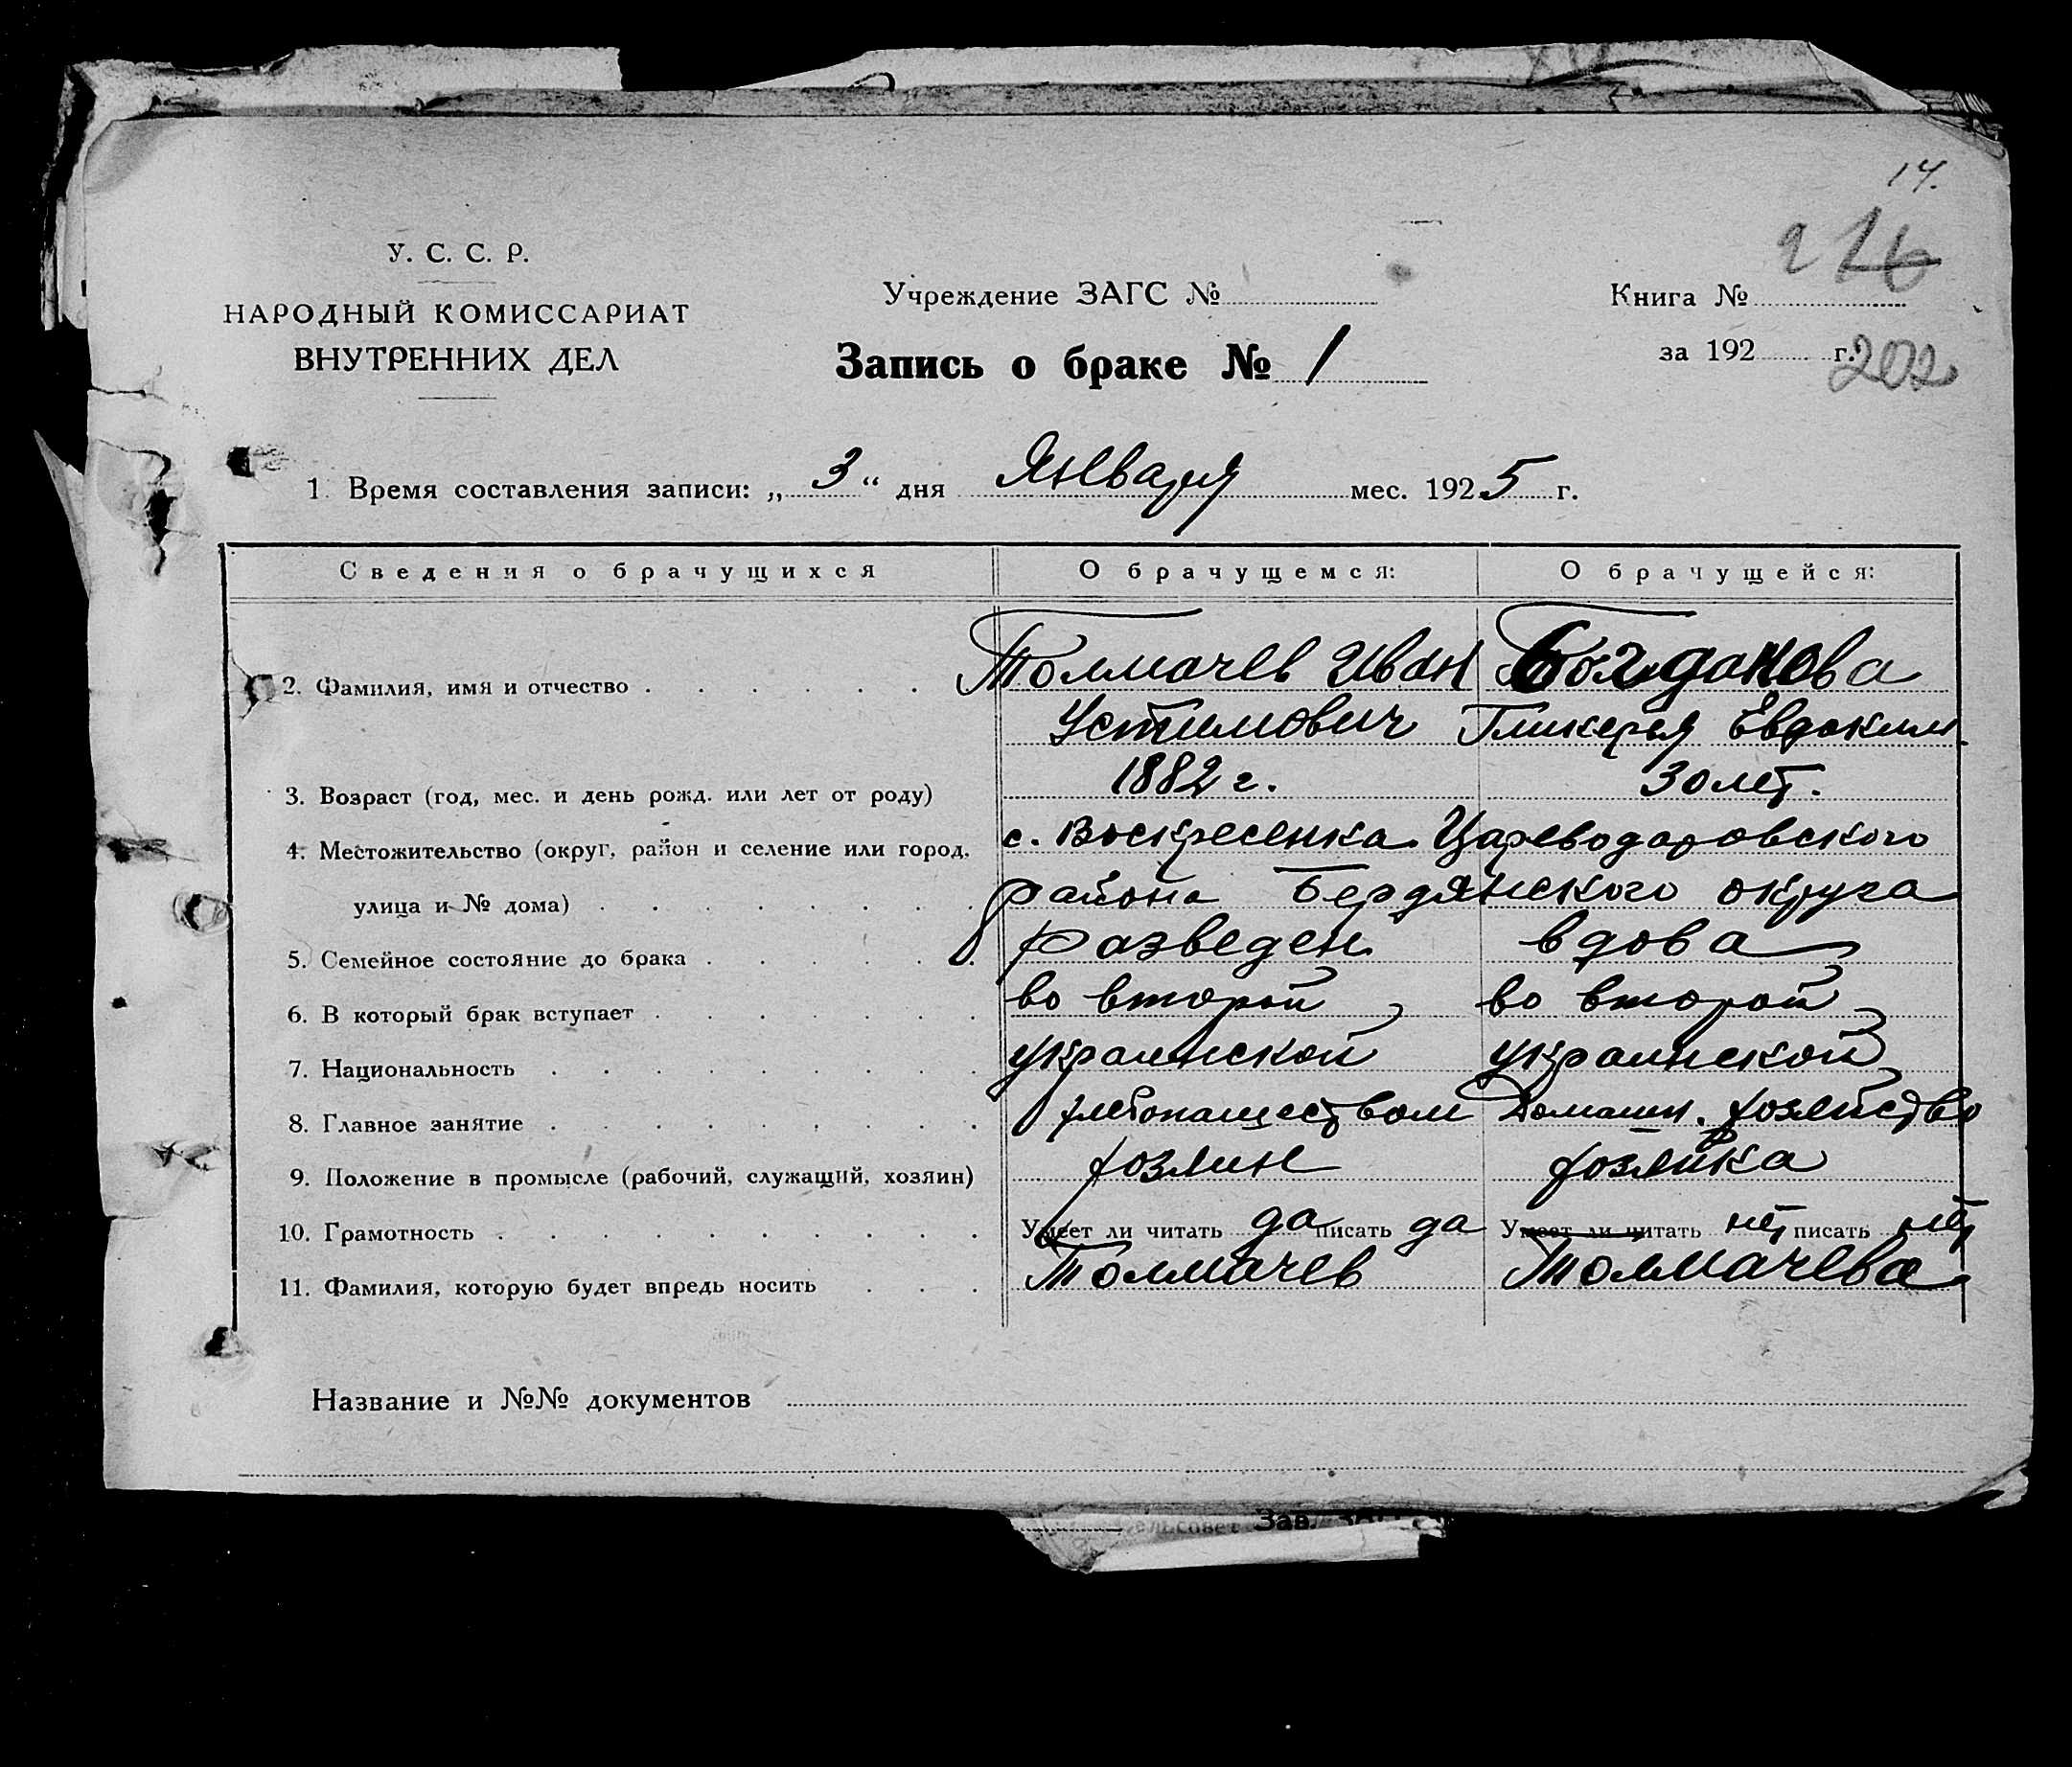 14.
216
У. С. С. Р.
НАРОДНЫЙ КОМИССАРИАТ
ВНУТРЕННИХ ДЕЛ
Учреждение ЗАГС №
Книга №
Запись о браке № 1
за 192 г.
202
1. Время составления записи: „ 3 “ дня Января мес. 1925 г.
Сведения о брачущихся О брачущемся: О брачущейся:
2. Фамилия, имя и отчество Толмачев Иван Богданова
Устимович Гликерья Евдоким.
3. Возраст (год, мес. и день рожд. или лет от роду) 1882 г. 30 лет.
4. Местожительство (округ, район и селение или город, с. Воскресенка Цареводаровского
улица и № дома) района Бердянского округа
5. Семейное состояние до брака разведен вдова
6. В который брак вступает во второй во второй
7. Национальность украинской украинской
8. Главное занятие хлебопашеством Домашн. хозяйство
9. Положение в промысле (рабочий, служащий, хозяин) хозяин хозяйка
10. Грамотность Умеет ли читать да писать да Умеет ли читать нет писать нет
11. Фамилия, которую будет впредь носить Толмачев Толмачева
Название и №№ документов
ельсовет Зав.